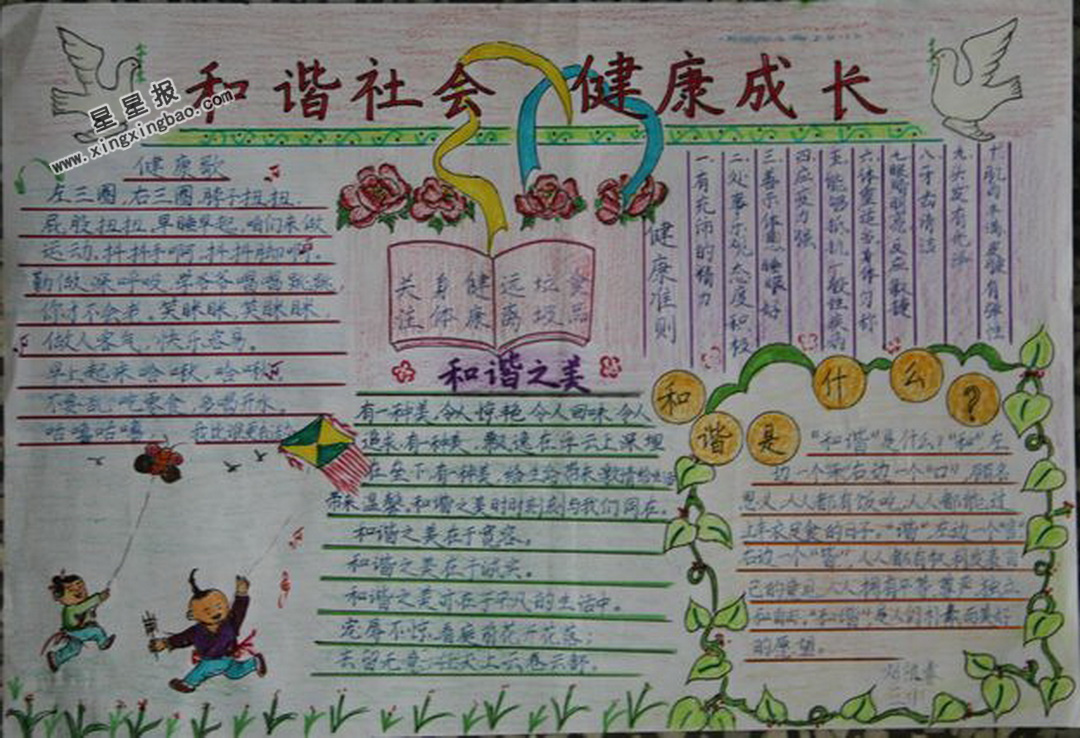 和谐社会 健康成长
星星报
www.xingxingbao.com
健康歌
左三圈,右三圈,脖子扭扭,
屁股扭扭,早睡早起,咱们来做
运动,抖抖手啊,抖抖脚啊,
勤做深呼吸,学爷爷唱唱跳跳,
你才不会老。笑眯眯,笑眯眯,
做人客气,快乐容易。
早上起来哈啾,哈啾,
不要乱吃零食,多喝开水。
咕噜咕噜,我比谁更
关身健远垃食
注体康离圾品
健康准则
一.有充沛的精力
二.处事乐观态度积极
三.善于休息睡眠好
四.应变力强
五.能够抵抗一般性疾病
六.体重适当身体匀称
七.眼睛明亮反应敏捷
八.牙齿清洁
九.头发有光泽
十.肌肉丰满皮肤有弹性
和谐之美
有一种美,令人惊艳,令人回味,令人
追求,有一种美,飘逸在浮云上,深埋
在尘下,有一种美,给生活带来激情给生活
带来温馨,和谐之美时时刻刻与我们同在。
和谐之美在于宽容。
和谐之美在于诚实。
和谐之美亦在于平凡的生活中。
宠辱不惊,看庭前花开花落;
去留无意,任天上云卷云舒。
和谐是什么?
"和谐"是什么?"和"左
边一个禾右边一个"口",顾名
思义,人人都有饭吃,人人都能过
上丰衣足食的日子。"谐"左边一个"言"
右边一个"皆",人人都有权利发表自
己的意见,人人拥有平等、尊严、独立
和自由。"和谐"是人的朴素而美好
的愿望。